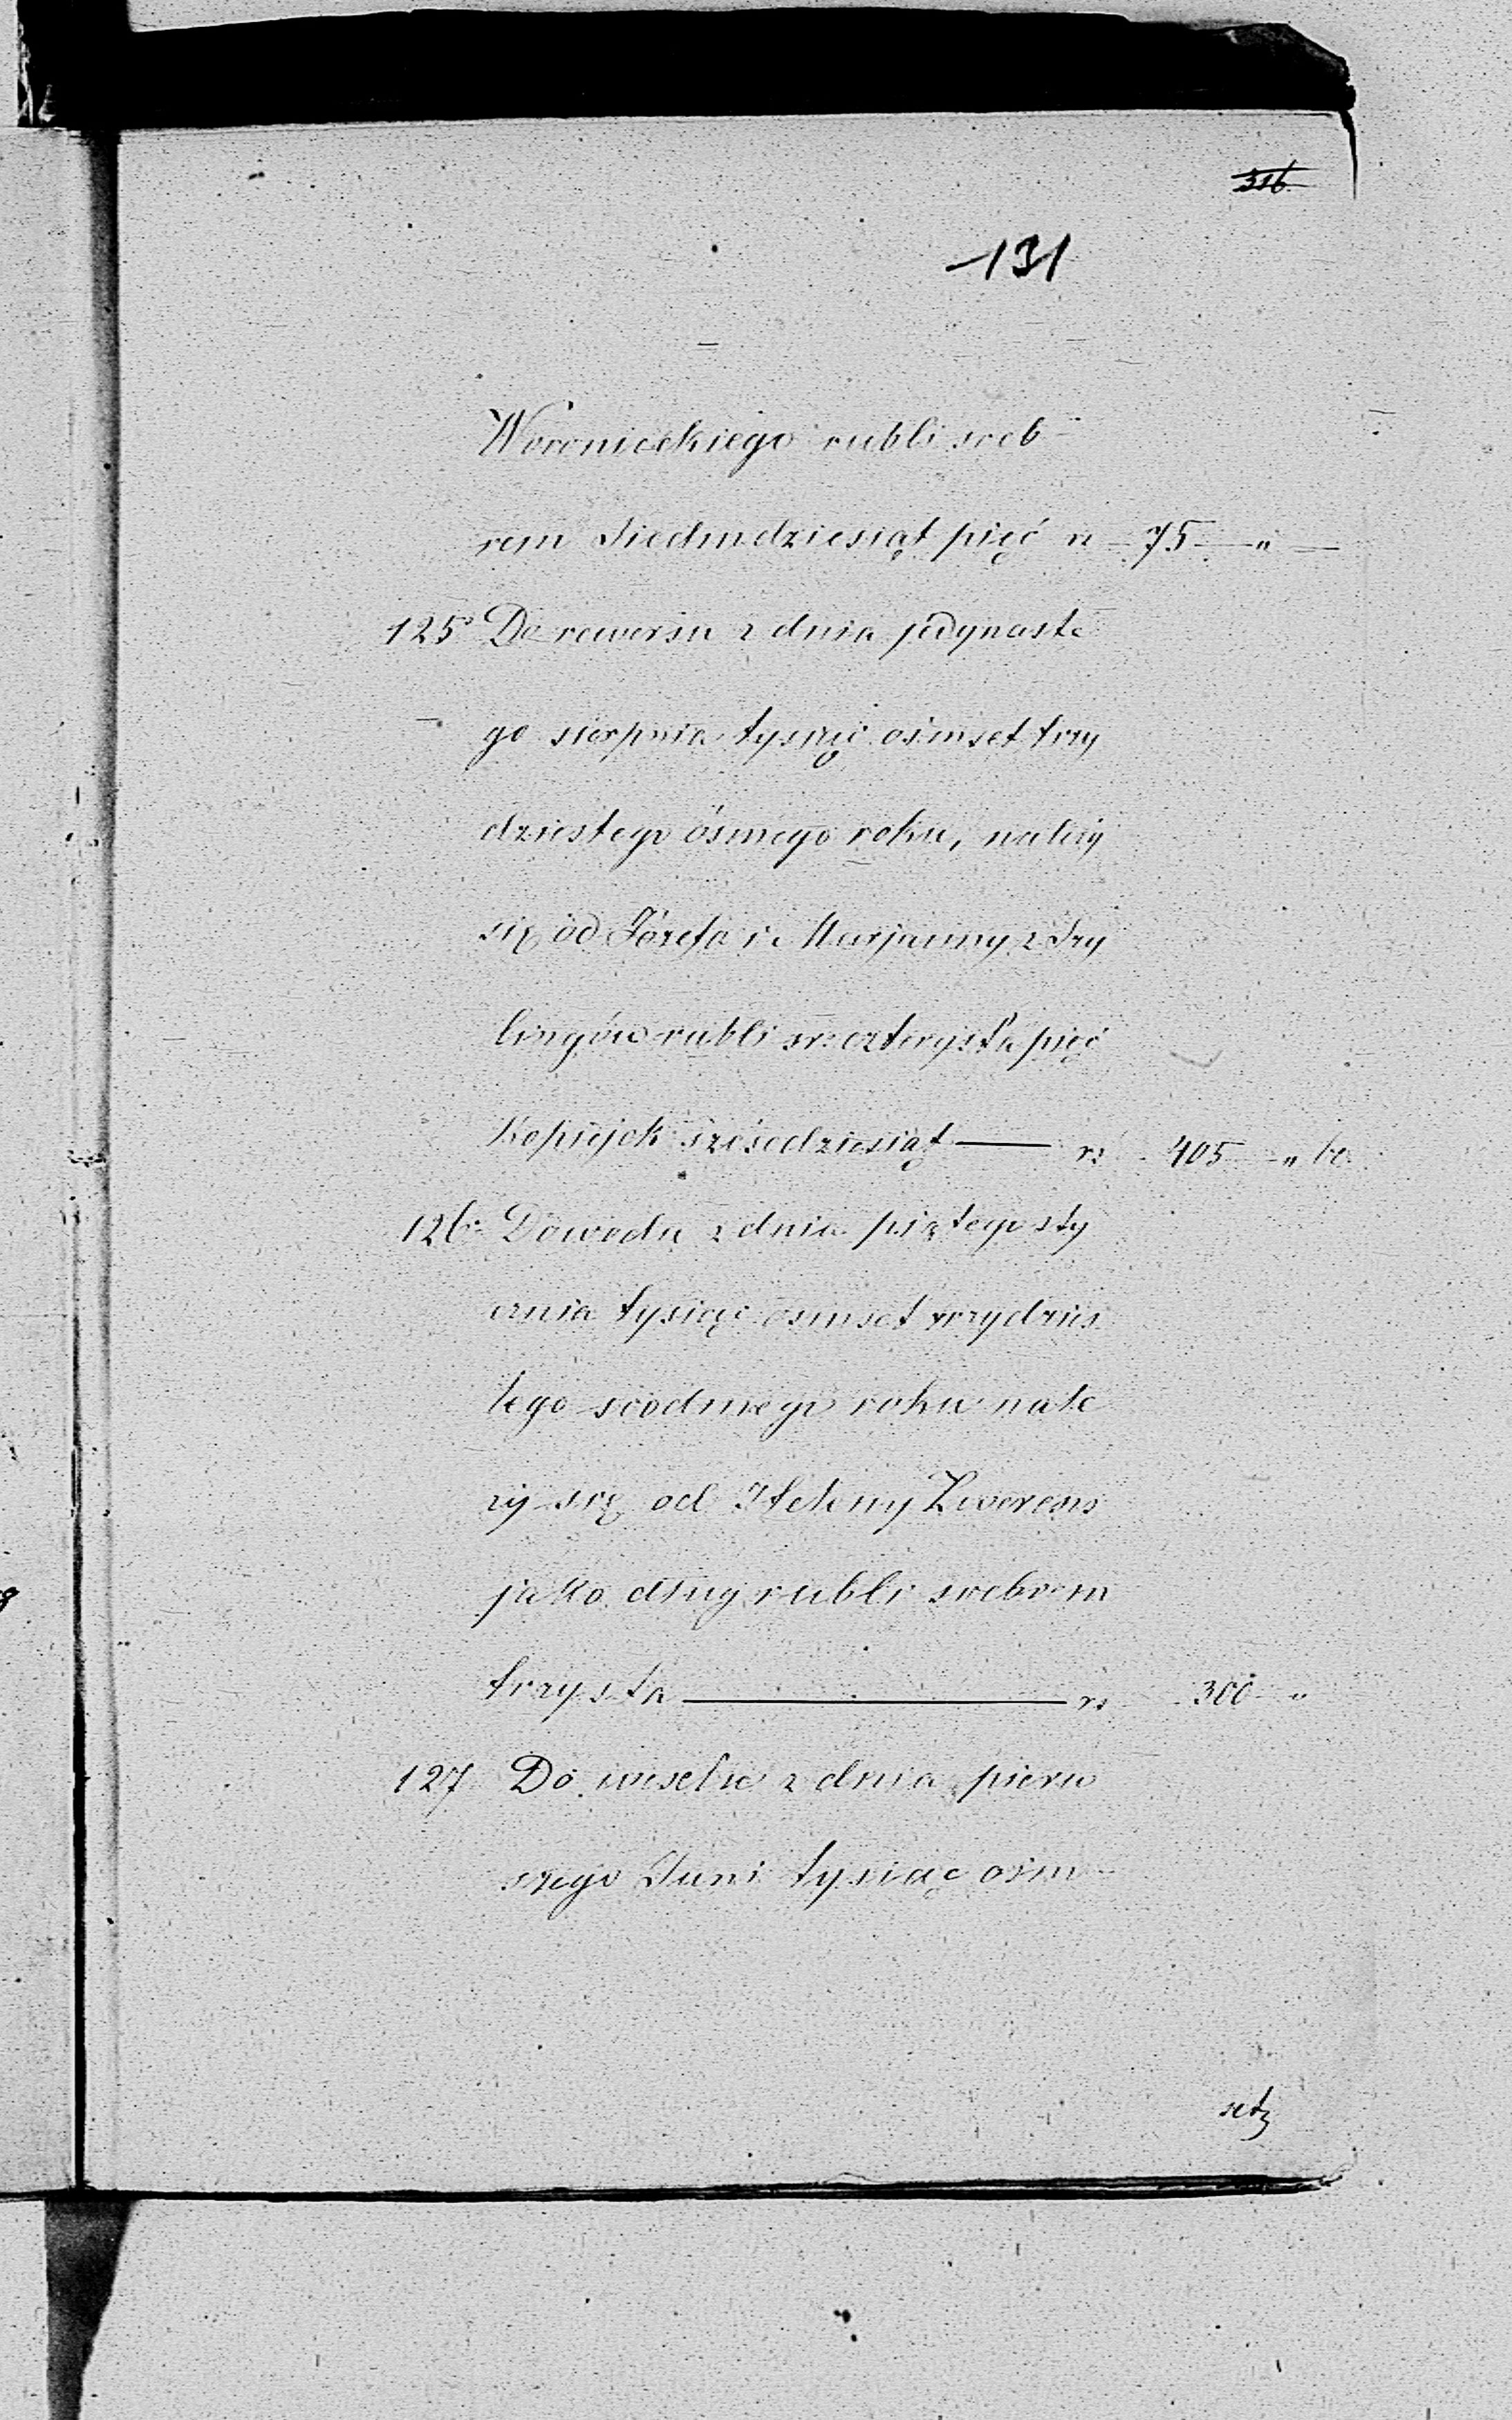 316
131
Woronieckiego rubli sreb-
rem siedmdziesiąt pięć rs 75 "
125 Do rewersu z dnia jedynaste
go sierpnia tysiąc ośmset trzy
dziestego ósmego roku, należy
się od Józefa i Marjanny z Szy
lingów rubli sr: czterysta pięć
Kopiejek sześćdziesiąt — rs 405 " 60
126. Dowodu z dnia piątego sty
cznia tysiąc ośmset trzydzies
tego siódmego roku nale
ży się od Heleny
jako dług rubli srebrem
trzysta — rs 300 "
127 Do wexelu z dnia pierw
szego Juni tysiąc ośm-
set